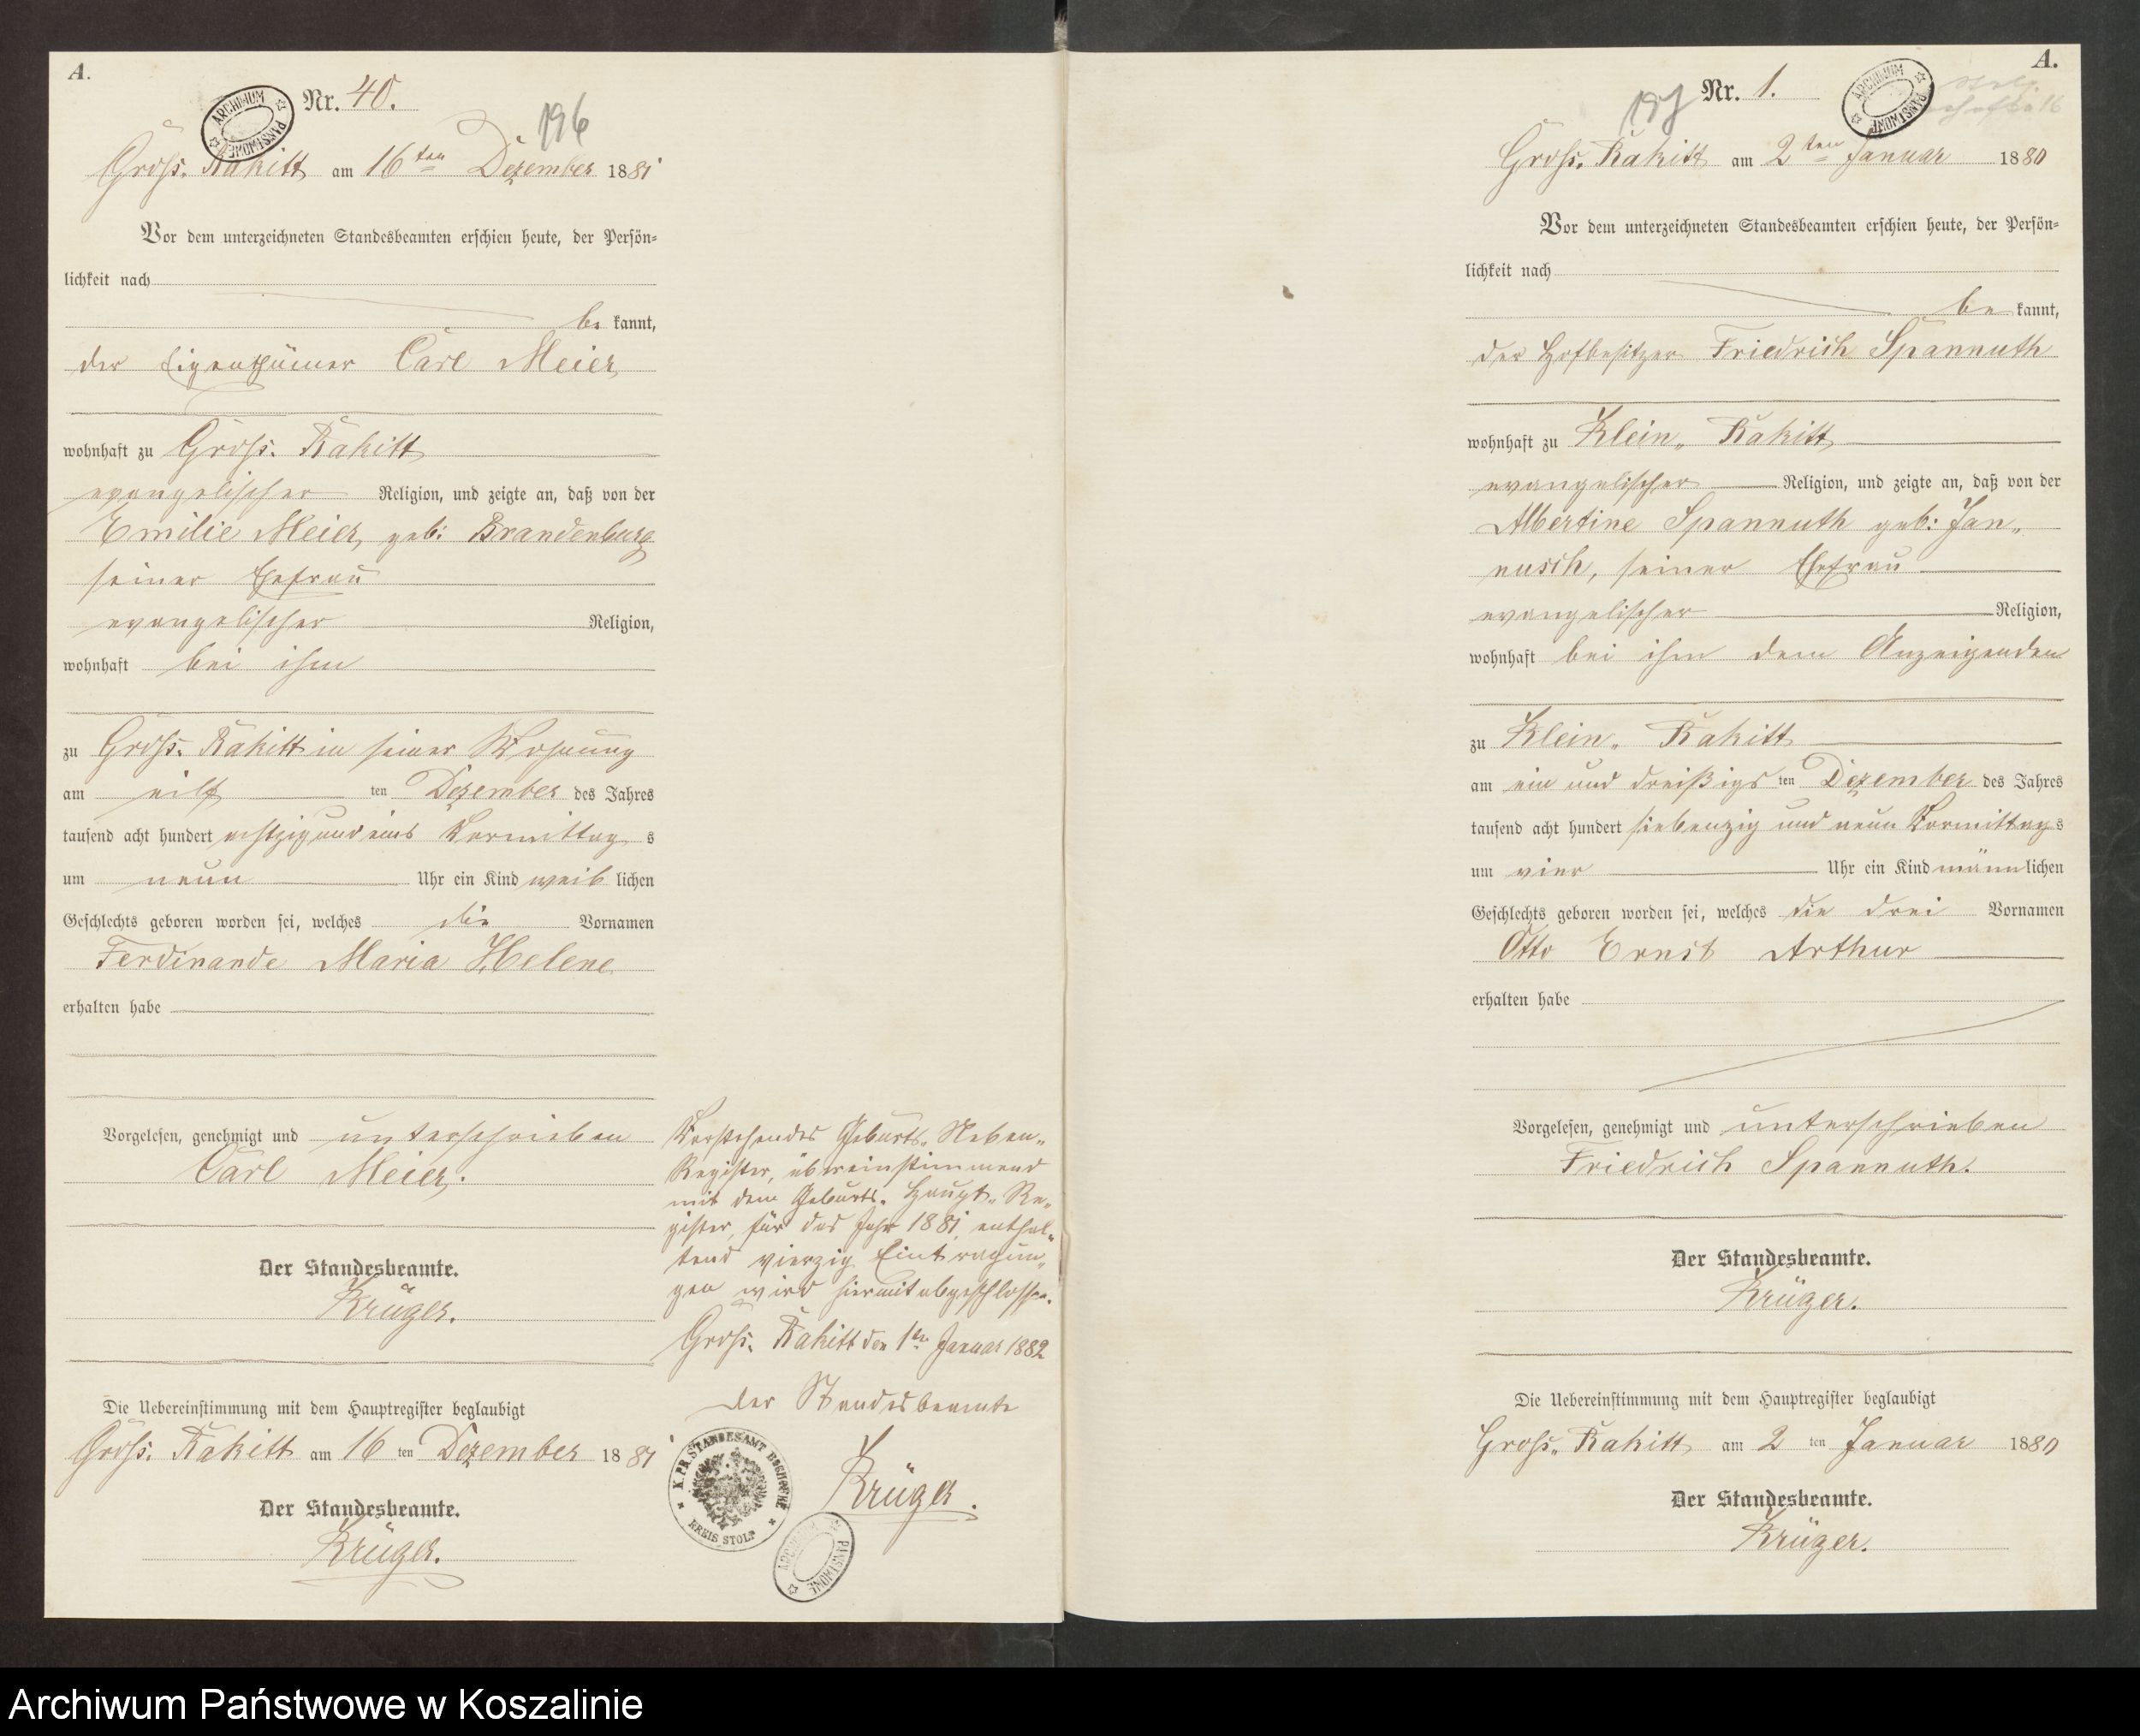 A.
Nr. 40.
ARCHIWUM PAŃSTWOWE
196
Groß. Rakitt am 16ten Dezember 1881
Vor dem unterzeichneten Standesbeamten erschien heute, der Persön-
lichkeit nach
be kannt,
der Eigenthümer Carl Meier
wohnhaft zu Groß. Rakitt
evangelischer Religion, und zeigte an, daß von der
Emilie Meier, geb: Brandenburg
seiner Ehefrau
evangelischer Religion,
wohnhaft bei ihm
zu Groß. Rakitt in seiner Wohnung
am eilf ten Dezember des Jahres
tausend acht hundert achtzig und eins Vormittag s
um neun Uhr ein Kind weib lichen
Geschlechts geboren worden sei, welches die Vornamen
Ferdinande Maria Helene
erhalten habe
Vorgelesen, genehmigt und unterschrieben
Carl Meier.
Der Standesbeamte.
Krüger.
Die Uebereinstimmung mit dem Hauptregister beglaubigt
Groß. Rakitt am 16 ten Dezember 1881
Der Standesbeamte.
Krüger.
Vorstehendes Geburts-Neben-
Register, übereinstimmend
mit dem Geburts-Haupt-Re-
gister, für das Jahr 1881, enthal-
tend vierzig Eintragun-
gen wird hiermit abgeschlossen.
Groß. Rakitt den 1ten Januar 1882
Der Standesbeamte
Krüger.
K. PR. STANDESAMT
KREIS STOLP
ARCHIWUM PAŃSTWOWE
A.
Nr. 1.
ARCHIWUM PAŃSTWOWE
197
Groß. Rakitt am 2ten Januar 1880
Vor dem unterzeichneten Standesbeamten erschien heute, der Persön-
lichkeit nach
be kannt,
der Hofbesitzer Friedrich Spannuth
wohnhaft zu Klein-Rakitt
evangelischer Religion, und zeigte an, daß von der
Albertine Spannuth geb: Jan-
nusch, seiner Ehefrau
evangelischer Religion,
wohnhaft bei ihm dem Anzeigenden
zu Klein-Rakitt
am ein und dreißigs ten Dezember des Jahres
tausend acht hundert siebenzig und neun Vormittags
um vier Uhr ein Kind männlichen
Geschlechts geboren worden sei, welches die drei Vornamen
Otto Ernst Arthur
erhalten habe
Vorgelesen, genehmigt und unterschrieben
Friedrich Spannuth.
Der Standesbeamte.
Krüger.
Die Uebereinstimmung mit dem Hauptregister beglaubigt
Groß-Rakitt am 2 ten Januar 1880
Der Standesbeamte.
Krüger.
Archiwum Państwowe w Koszalinie